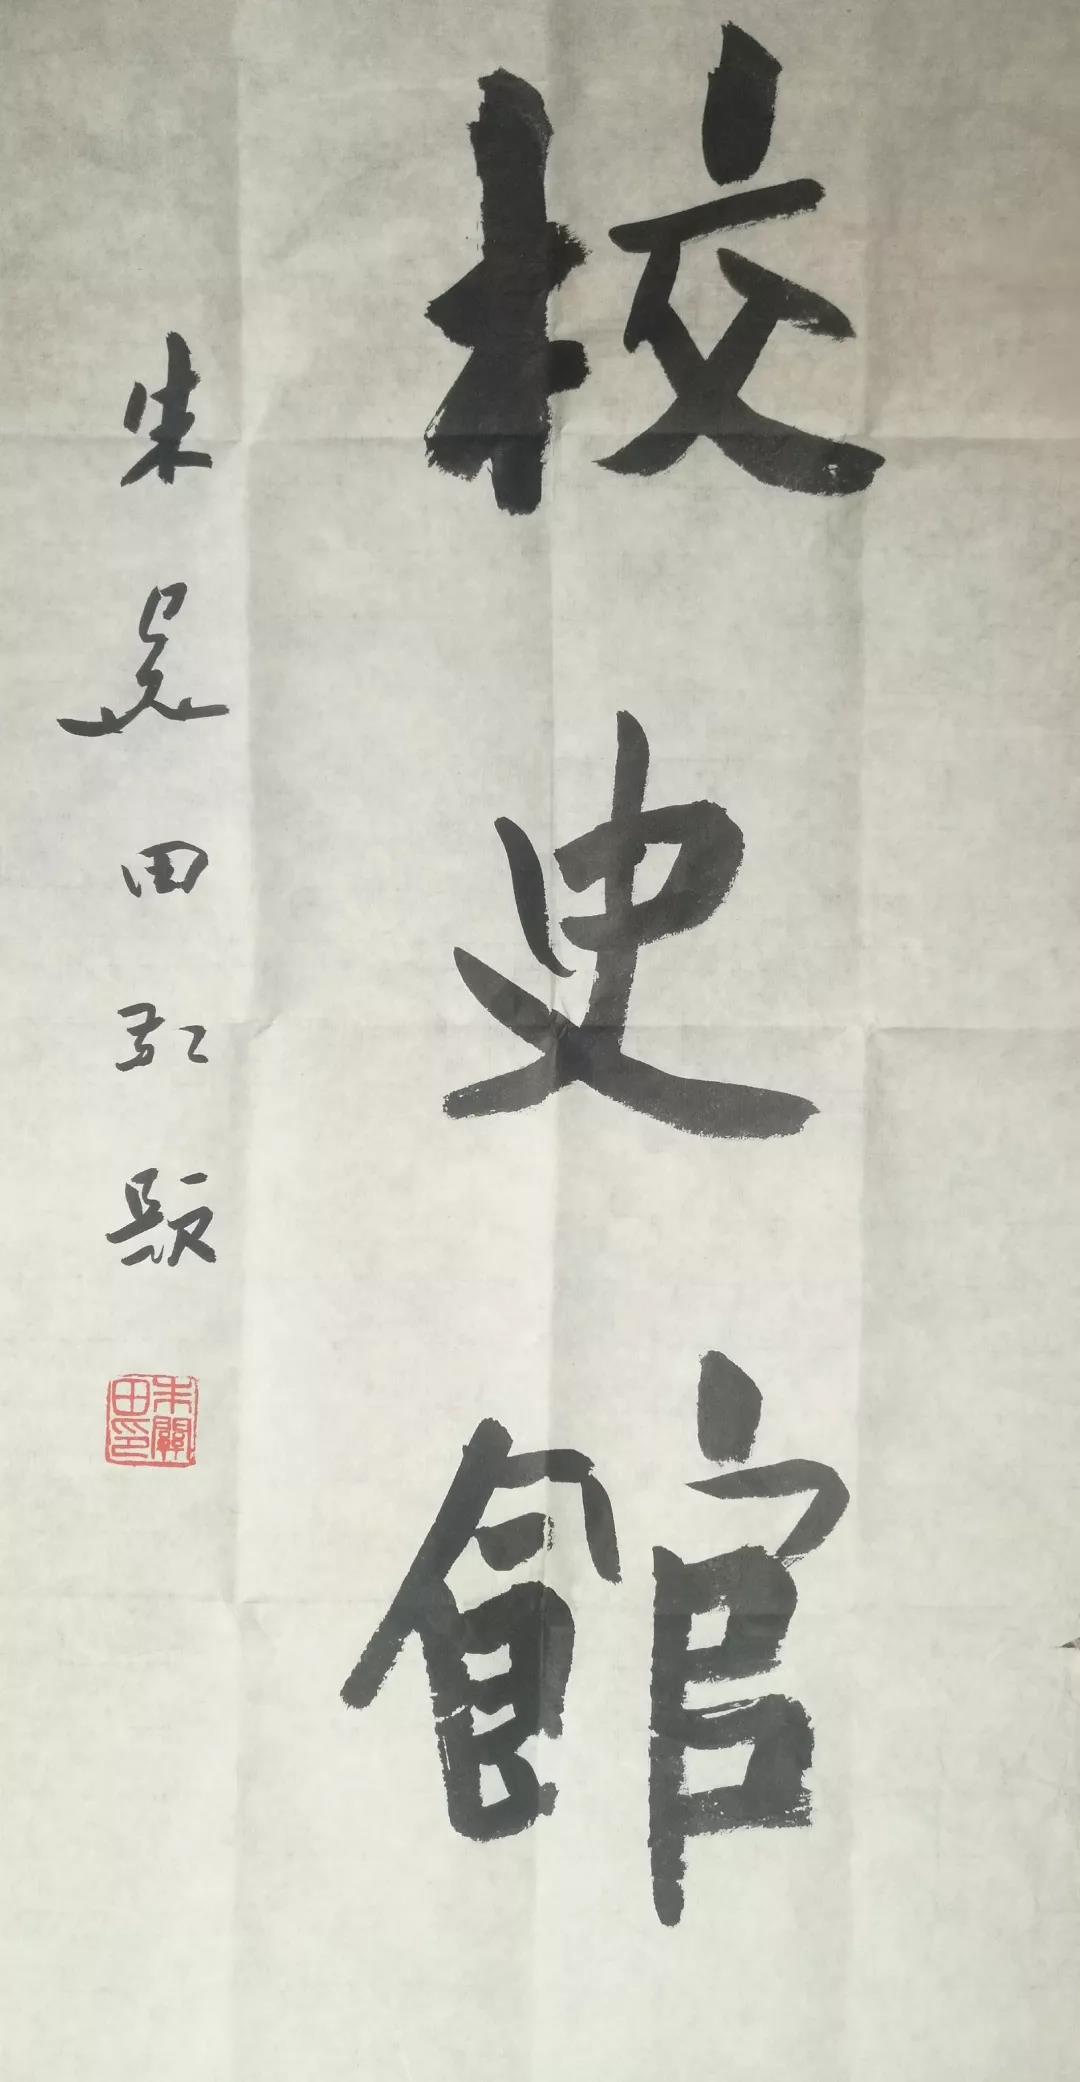 校史館
朱關田敬題
朱關田印